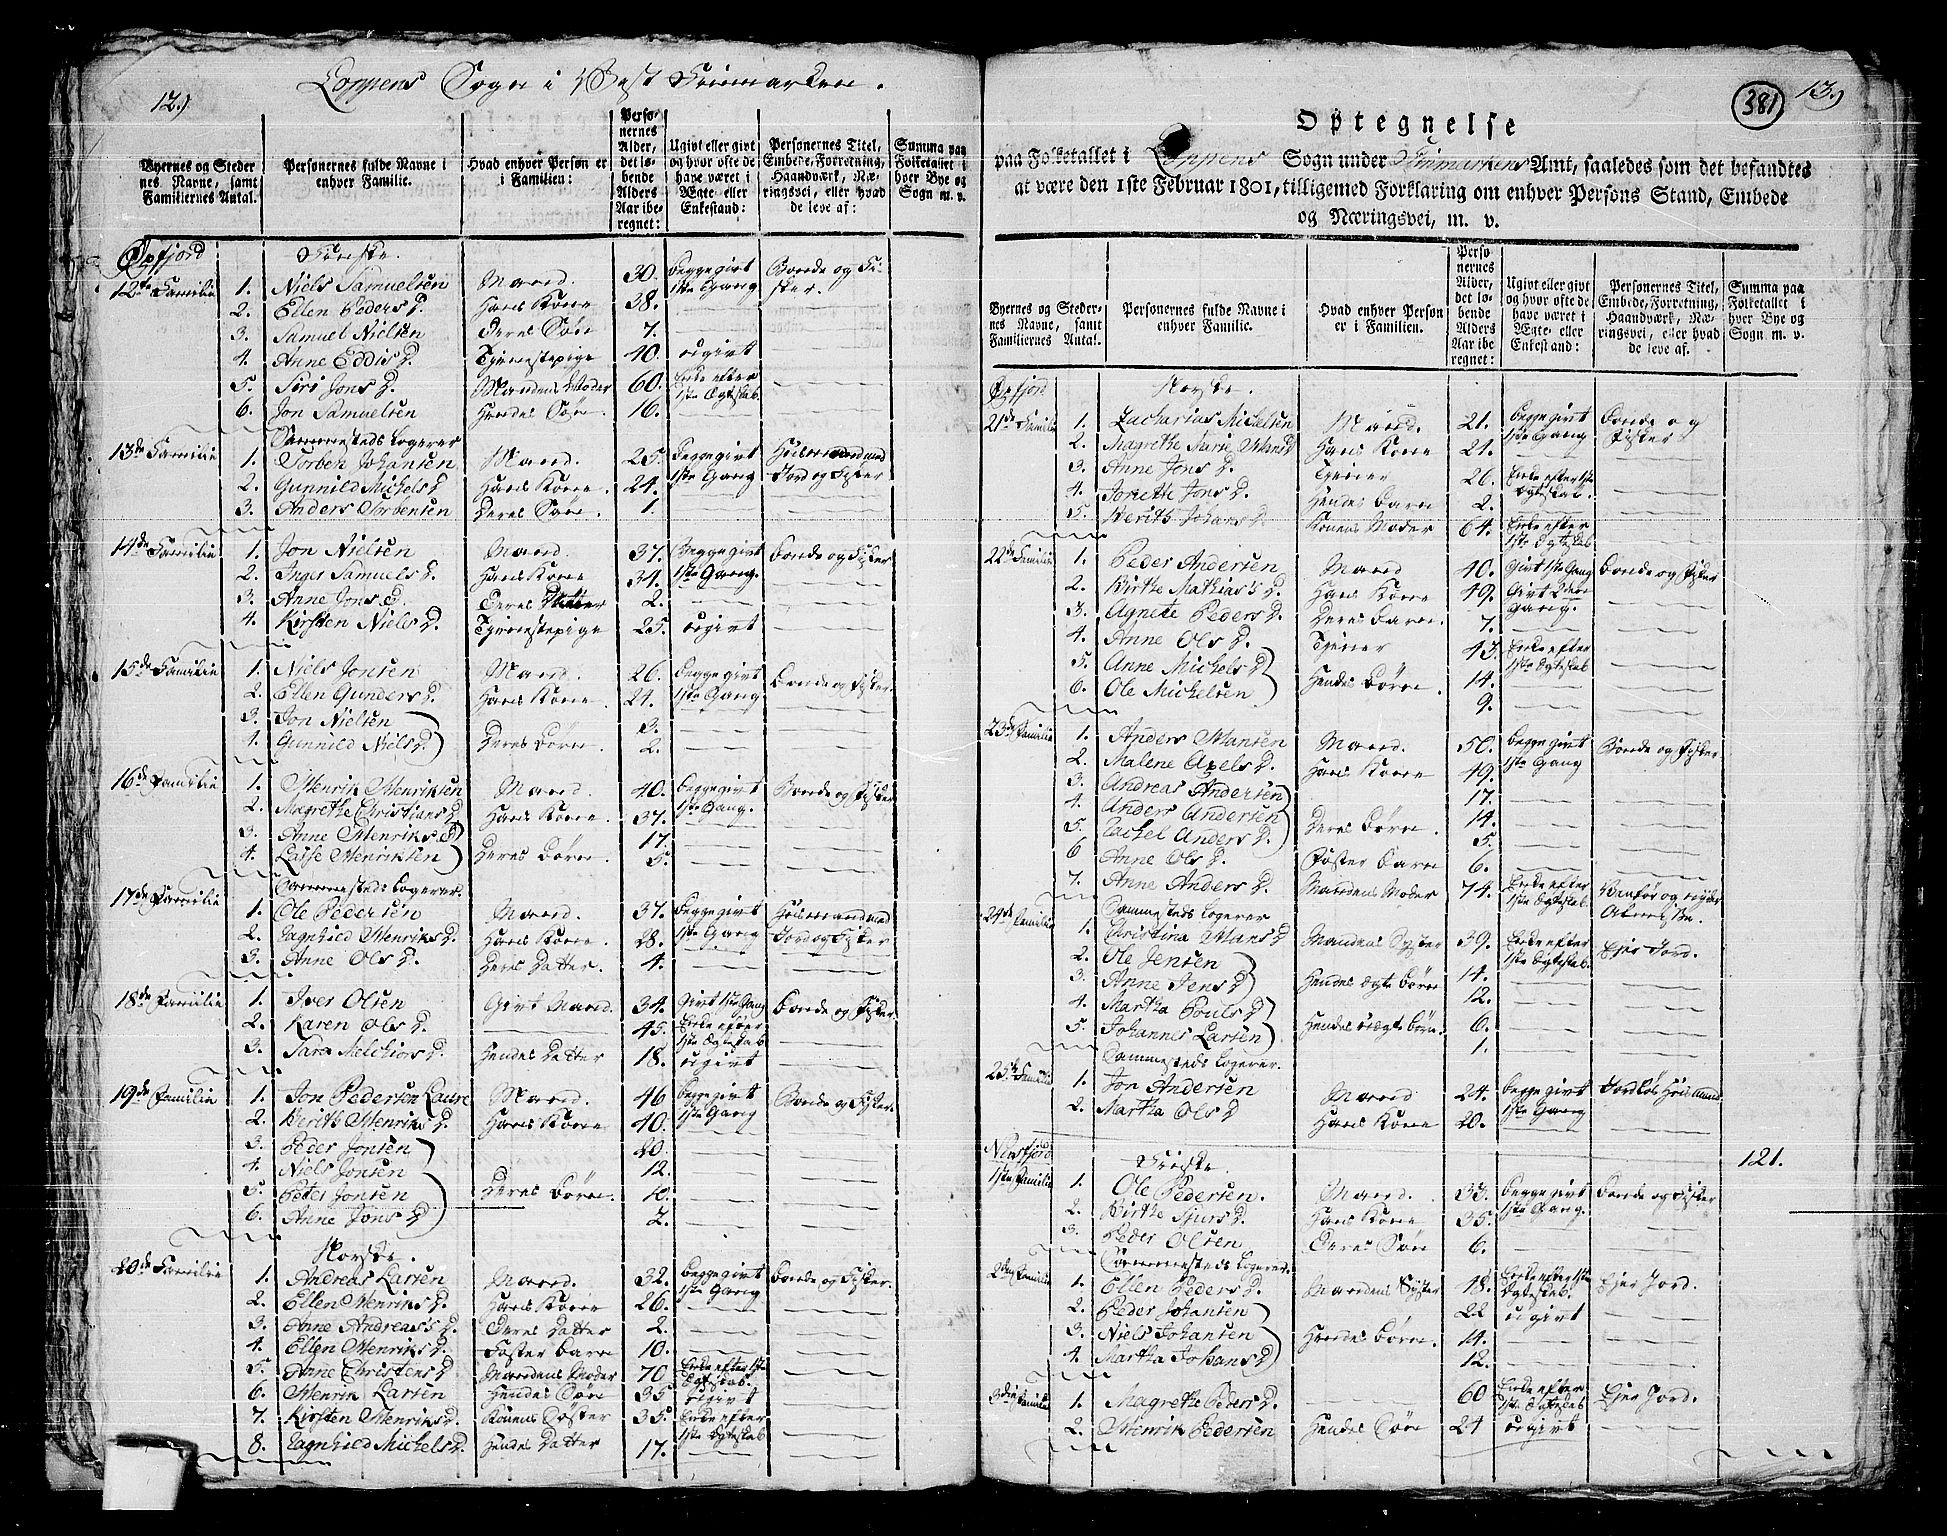 12.)
Loppens Sogn i Vest Finmarken.
Byernes og Steder
nes Navne, samt
Familiernes Antal.
Personernes fulde Navne i
enhver Familie.
Hvad enhver Person er
i Familien:
Perso-
nernes
Alder,
det lø-
bende
Alders
Aar ibe-
regnet:
Ugivt eller givt
og hvor ofte de
have været i
Ægte- eller
Enkestand:
Personernes Titel,
Embede, Forretning,
Haandværk, Næ-
ringsvei, eller hvad
de leve af:
Summa paa
Folketallet i
hver Bye og
Sogn m. v.
Øxfjord Finske.
12te Familie 1. Niels Samuelsen Mand. 30. Begge givt 1ste Gang Bonde og Fi-
sker.
2. Ellen Peders D. Hans Kone 38.
3. Samuel Nielsen Deres Søn 7.
4. Anne Eddis D. Tjenestepige 40. ugivt
5. Siri Jons D. Mandens Moder 60. Enke efter 1ste Ægteskab
6. Jon Samuelsen Hendes Søn. 16.
Sammesteds Logerer
13de Familie 1. Torben Johansen Mand. 25. Begge givt 1ste Gang Huusmand med Jord og Fisker
2. Gunnild Michels D. Hans Kone. 24.
3. Anders Torbensen Deres Søn. 1.
14de Familie 1. Jon Nielsen Mand. 37. Begge givt 1ste Gang. Bonde og Fisker
2. Inger Samuels D. Hans Kone 34.
3. Anne Jons D. Deres Datter 2.
4. Kirsten Niels D. Tjenestepige 25. ugivt
15de Familie 1. Niels Jonsen Mand. 26. Begge givt 1ste Gang Bonde og Fisker.
2. Ellen Gunders D. Hans Kone. 24.
3. Jon Nielsen 3.
4. Gunnild Niels D. Deres Børn 2.
16de Familie 1. Henrik Henriksen Mand. 40. Begge givt 1ste Gang. Bonde og Fisker
2. Magrethe Christians D. Hans Kone. 37.
3. Anne Henriks D 17.
4. Lasse Henriksen Deres Børn. 5.
Sammesteds Logerer.
17de Familie 1. Ole Pedersen Mand. 37. Begge givt 1ste Gang Huusmand med Jord og Fisker
2. Ragnhild Henriks D. Hans Kone. 28.
3. Anne Ols D. Deres Datter. 4.
18de Familie 1. Iver Olsen Givt Mand. 34. Givt 1ste Gang Bonde og Fisker
2. Karen Ols D. 45. Enke efter 1ste Ægteskab
3. Sara Melchiors D. Hendes Datter 18. ugivt
19de Familie 1. Jon Pedersen Mand. 46 Begge givt 1ste Gang Bonde og Fisker
2. Berith Henriks D. Hans Kone 40.
3. Peder Jonsen 20.
4. Niels Jonsen 12.
5. Peter Jonsen Deres Børn. 10.
6. Anne Jons D 2.
Norske.
20de Familie 1. Andreas Larsen Mand. 32. Begge givt 1ste Gang Bonde og Fisker.
2. Ellen Henriks D. Hans Kone 26.
3. Anne Andreas's D. Deres Datter 2.
4. Ellen Henriks D. Foster Barn 10.
5. Anne Christens D Mandens Moder 70 Enke efter 1ste Ægteskab.
6. Henrik Larsen Hendes Søn 35 ugivt
7. Kirsten Henriks D. Konens Søster 35. Enke efter 1ste Ægteskab
8. Ragnhild Michels D. Hendes Datter 17.
381
13.)
Optegnelse
paa Folketallet i Loppens Sogn under Finmarkens Amt, saaledes som det befandtes
at være den 1ste Februar 1801, tilligemed Forklaring om enhver Persons Stand, Embede
og Næringsvei, m. v.
Byernes og Steder-
nes Navne, samt
Familiernes Antal.
Personernes fulde Navne i
enhver Familie.
Hvad enhver Person
er i Familien.
Perso
nernes
Alder,
det lø-
bende
Alders
Aar ibe
regnet:
Ugivt eller givt
og hvor ofte de
have været i
Ægte- eller
Enkestand:
Personernes Titel,
Embede, Forretning,
Haandværk, Næ-
ringsvei, eller hvad
de leve af.
Summa paa
Folketallet i
hver Bye og
Sogn m. v.
Øxfjord Norske.
21de Familie 1. Zacharias Michelsen Mand. 21. Begge givt 1ste Gang Bonde og Fisker
2. Magrethe Marie Hans D Hans Kone 21.
3. Anne Jons D. Tjener 26. Enke efter 1ste Ægteskab.
4. Jonette Jons D. Hendes Barn 2.
5. Berith Johans D. Konens Moder 64. Enke efter 1ste Ægteskab
22de Familie 1. Peder Andersen Mand 40. Givt 1ste Gang Bonde og Fisker
2. Birthe Mathias's D. Hans Kone 49. Givt 2den Gang.
3. Agnete Peders D. Deres Barn. 7.
4. Anne Ols D. Tjener 43. Enke efter 1ste Ægteskab
5. Anne Michels D 14.
6. Ole Michelsen Hendes Børn. 9.
23de Familie 1. Anders Hansen Mand. 50. Begge givt 1ste Gang Bonde og Fisker
2. Malene Axels D. Hans Kone 49.
3. Andreas Andersen 17.
4. Anders Andersen Deres Børn. 14.
5. Rachel Anders D. 5.
6 Anne Ols D. Foster Barn 6.
7. Anne Anders D. Mandens Moder 74. Enke efter 1ste Ægteskab. Vanfør og nyder Almisse.
Sammesteds Logerer
24de Familie 1. Christina Hans D Mandens Syster 39. Enke efter 1ste Ægteskab. Ejer Jord.
2. Ole Jensen 14.
3. Anne Jens D Hendes ægte Børn 12.
4. Martha Pouls D 6.
5. Johannes Larsen Hendes uægte Børn. 1.
Sammesteds Logerer.
25de Familie 1. Jon Andersen Mand 24. Begge givt 1ste Gang Jordløs Huusmand
2. Martha Ols D Hans Kone 20.
121.
Finske.
1ste Familie 1. Ole Pedersen. Mand. 33. Begge givt 1ste Gang. Bonde og Fisker
2. Birthe Sjurs D. Hans Kone 35.
3. Peder Olsen Deres Søn 6.
Sammesteds Logerer.
2den Familie 1. Ellen Peders D. Mandens Syster 48. Enke efter 1ste Ægteskab. Ejer Jord.
2. Peder Johansen 22 ugivt
3. Niels Johansen Hendes Børn 14.
4. Martha Johans D 12.
3die Familie 1. Magrethe Peders D. 60 Enke efter 1ste Ægteskab Ejer Jord.
2. Henrik Pedersen Hendes Søn 24 ugivt